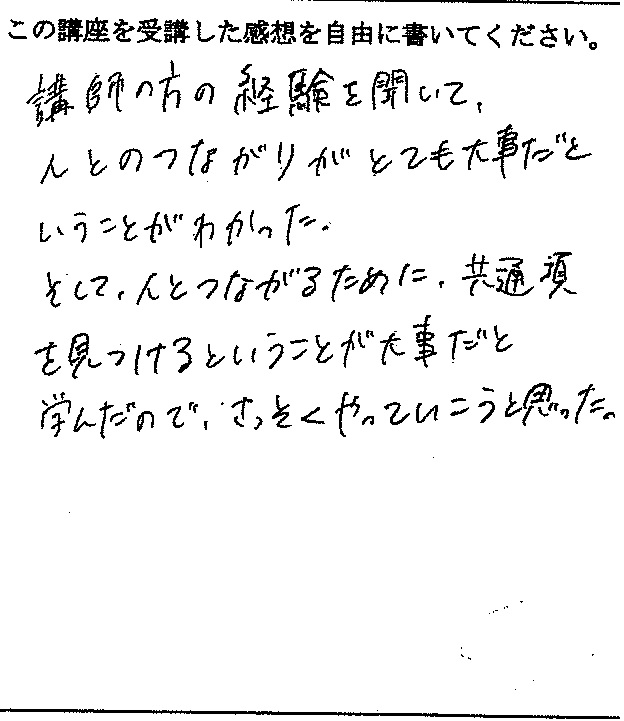 この講座を受講した感想を自由に書いてください。
講師の方の経験を聞いて、
人とのつながりがとても大事だと
いうことがわかった。
そして、人とつながるために、共通項
を見つけるということが大事だと
学んだので、さっそくやっていこうと思った。